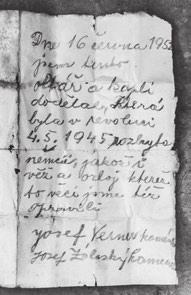 Dne 16 června 195
jsem tento
oltář a kapli
dodělal, která
byla v revoluci
4.5. 1945 rozbyta
němci, jakož i
věž a orloj které
to věci jsme též
opravili
yosef Verner kameník
Josef Žaleský kameník